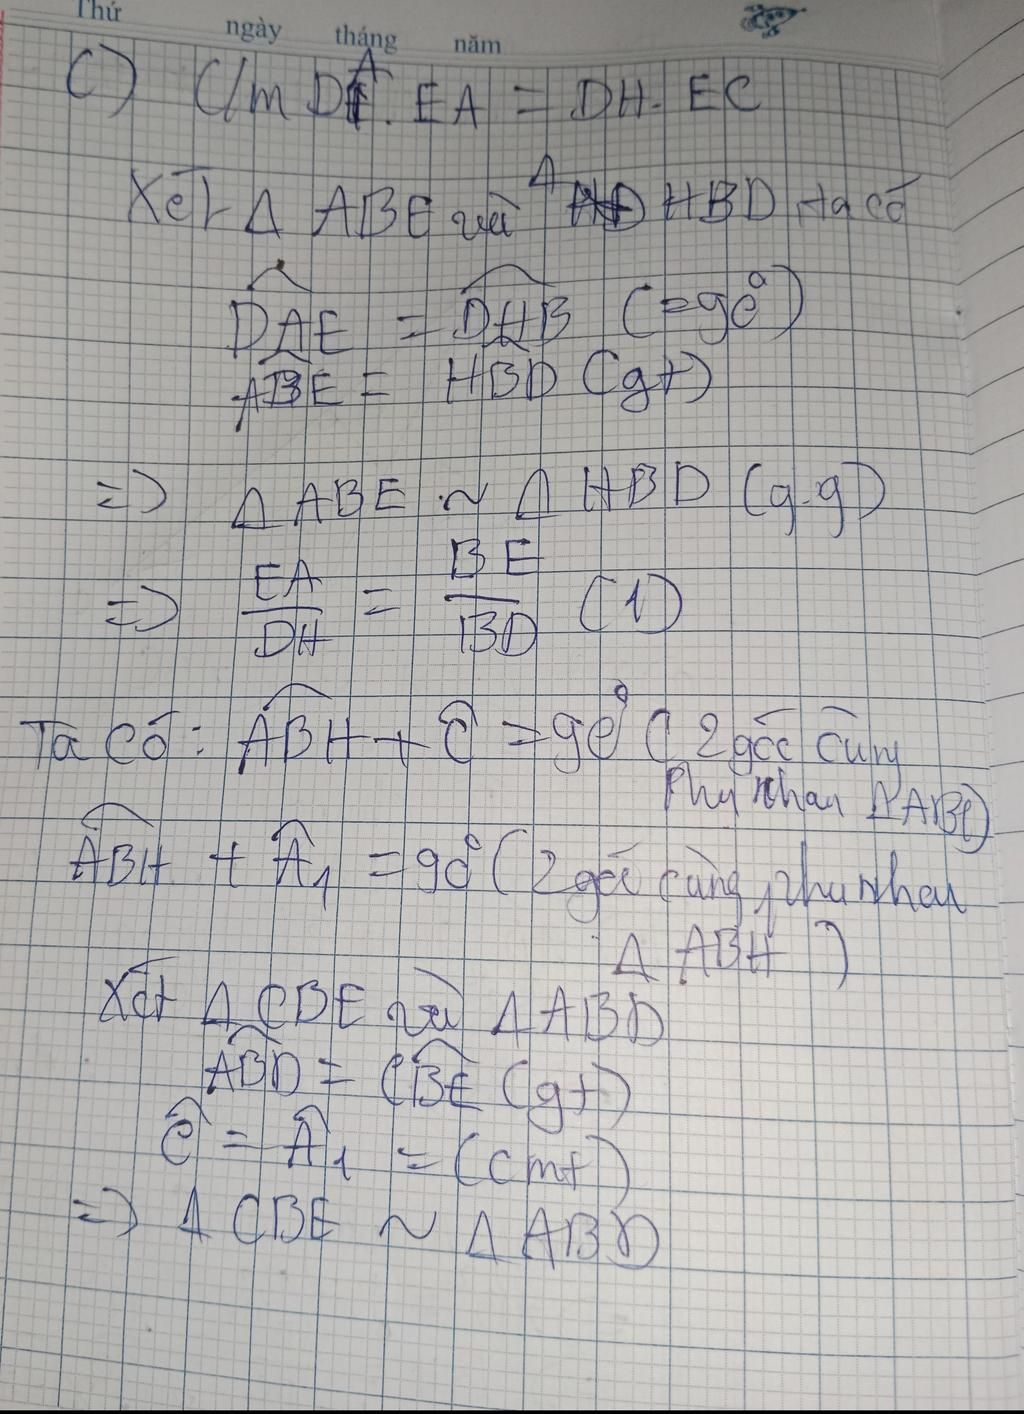 Thứ
ngày tháng năm
C) C/m DA. EA = DH. EC
Xét Δ ABE và Δ HBD ta có
DAE = DHB (=90°)
ABE = HBD (gt)
=> Δ ABE ~ Δ HBD (g.g)
=> EA/DH = BE/BD (1)
Ta có: ABH + Ĉ = 90° (2 góc cùng
phụ nhau ΔABC)
ABH + Â1 = 90° (2 góc cùng phụ nhau
Δ ABH )
Xét Δ CBE và Δ ABD
ABD = CBE (gt)
Ĉ = Â1 = (cmt)
=> Δ CBE ~ Δ ABD